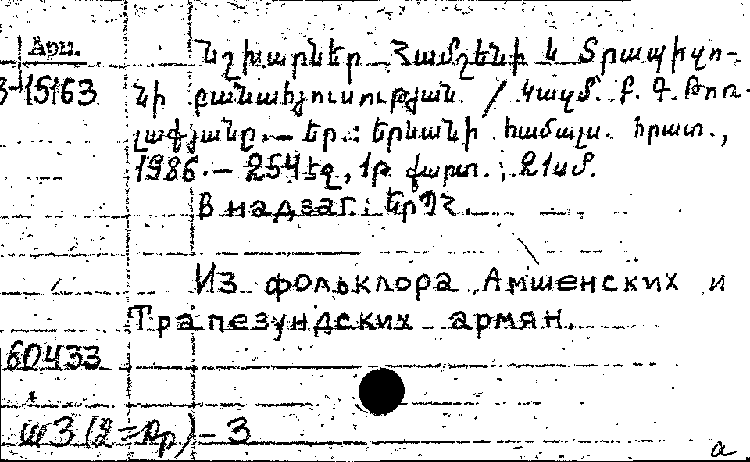 Арм.
3-15163
Նշխարներ Համշենի և Տրապիզո-
նի բանահյուսության / Կազմ. Բ. Գ. Թոռ-
լաքյանը. – Եր.: Երևանի համալս. հրատ.,
1986. – 254 էջ, 1թ քարտ.; 21սմ.
В надзаг.: ԵրՊՀ.
Из фольклора Амшенских и
Трапезундских армян.
60433
ш3(2=Ар)-3
а